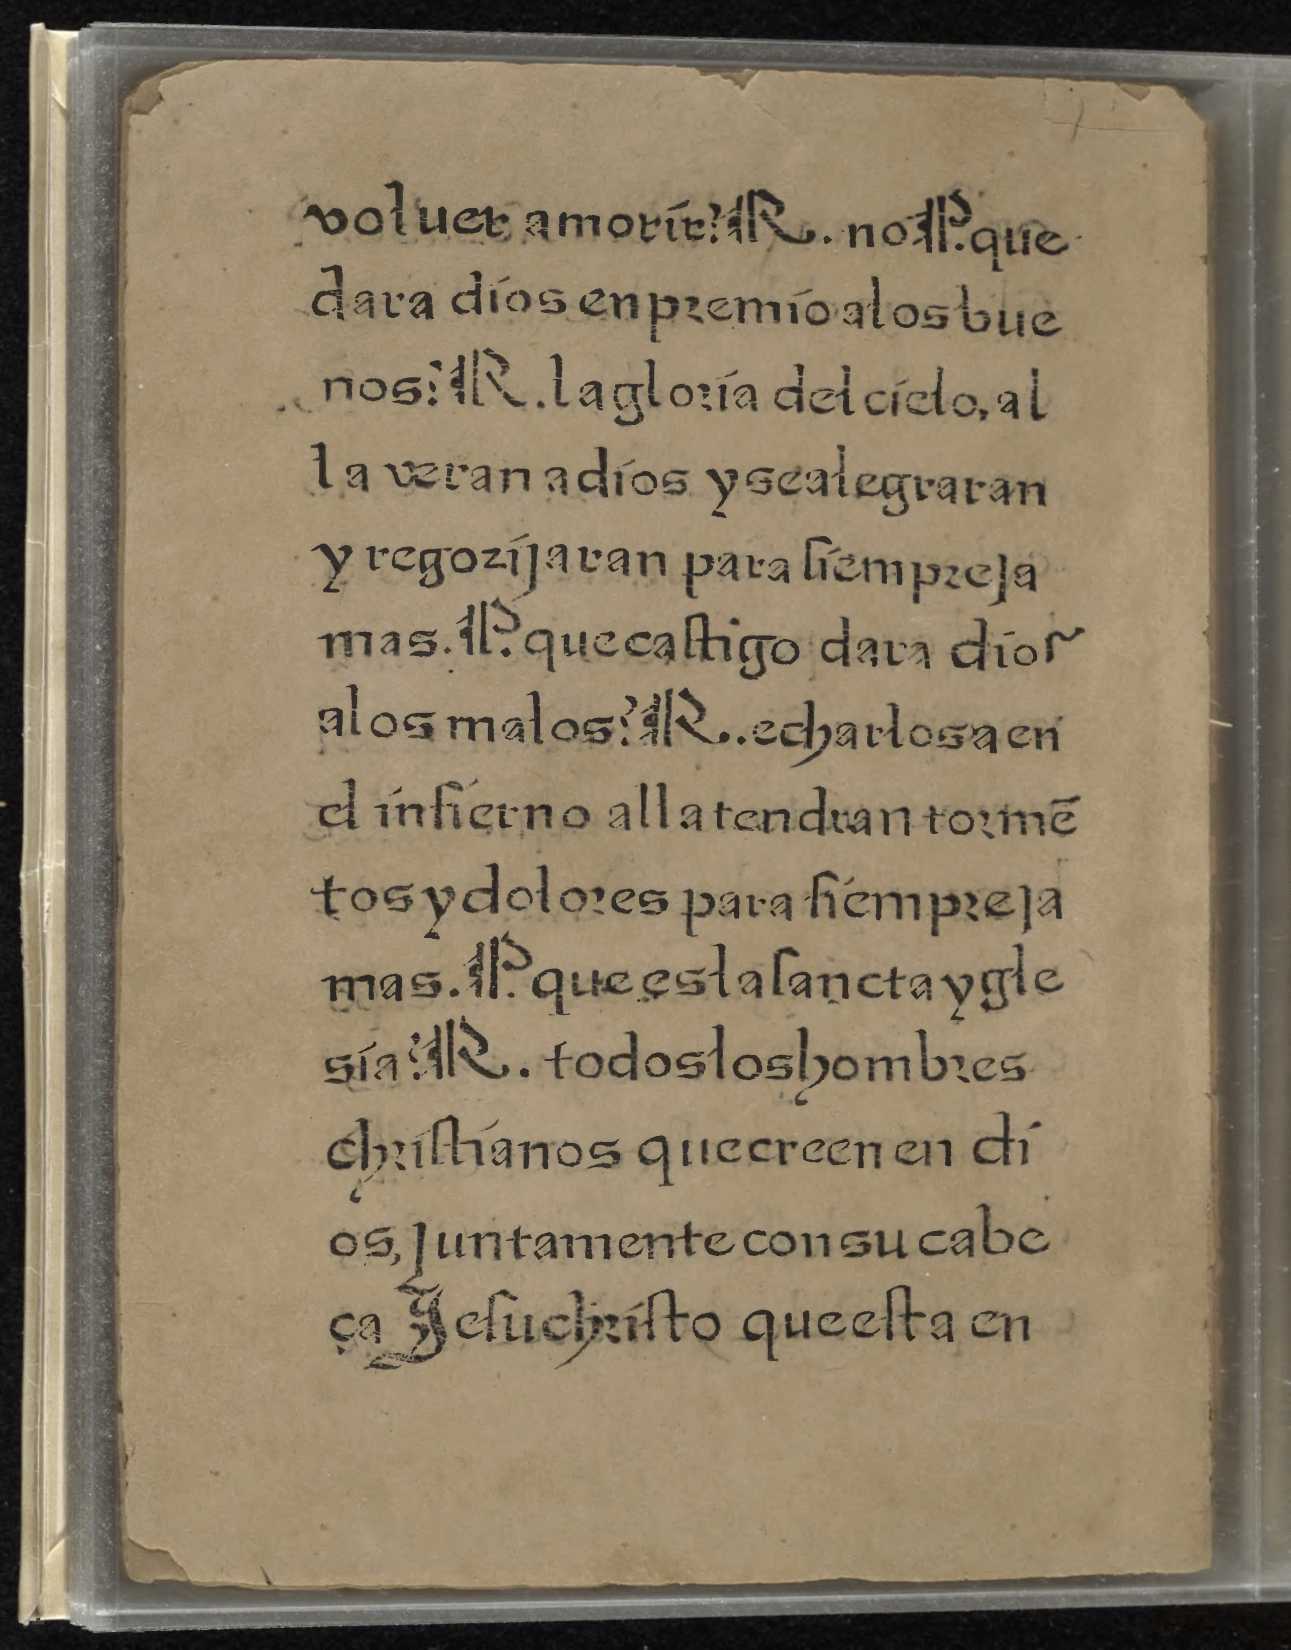 voluer amorir? R. no P. que
dara dios en premio alos bue
nos? R. la gloria del cielo, al
la veran a dios y se alegraran
y regozijaran para siempre ja
mas. P. que castigo dara dios
alos malos? R. echarlos a en
el infierno alla tendran tormẽ
tos y dolores para siempre ja
mas. P. que es la sancta ygle
sia? R. todos los hombres
christianos que creen en di
os, juntamente con su cabe
ça Jesuchristo que esta en